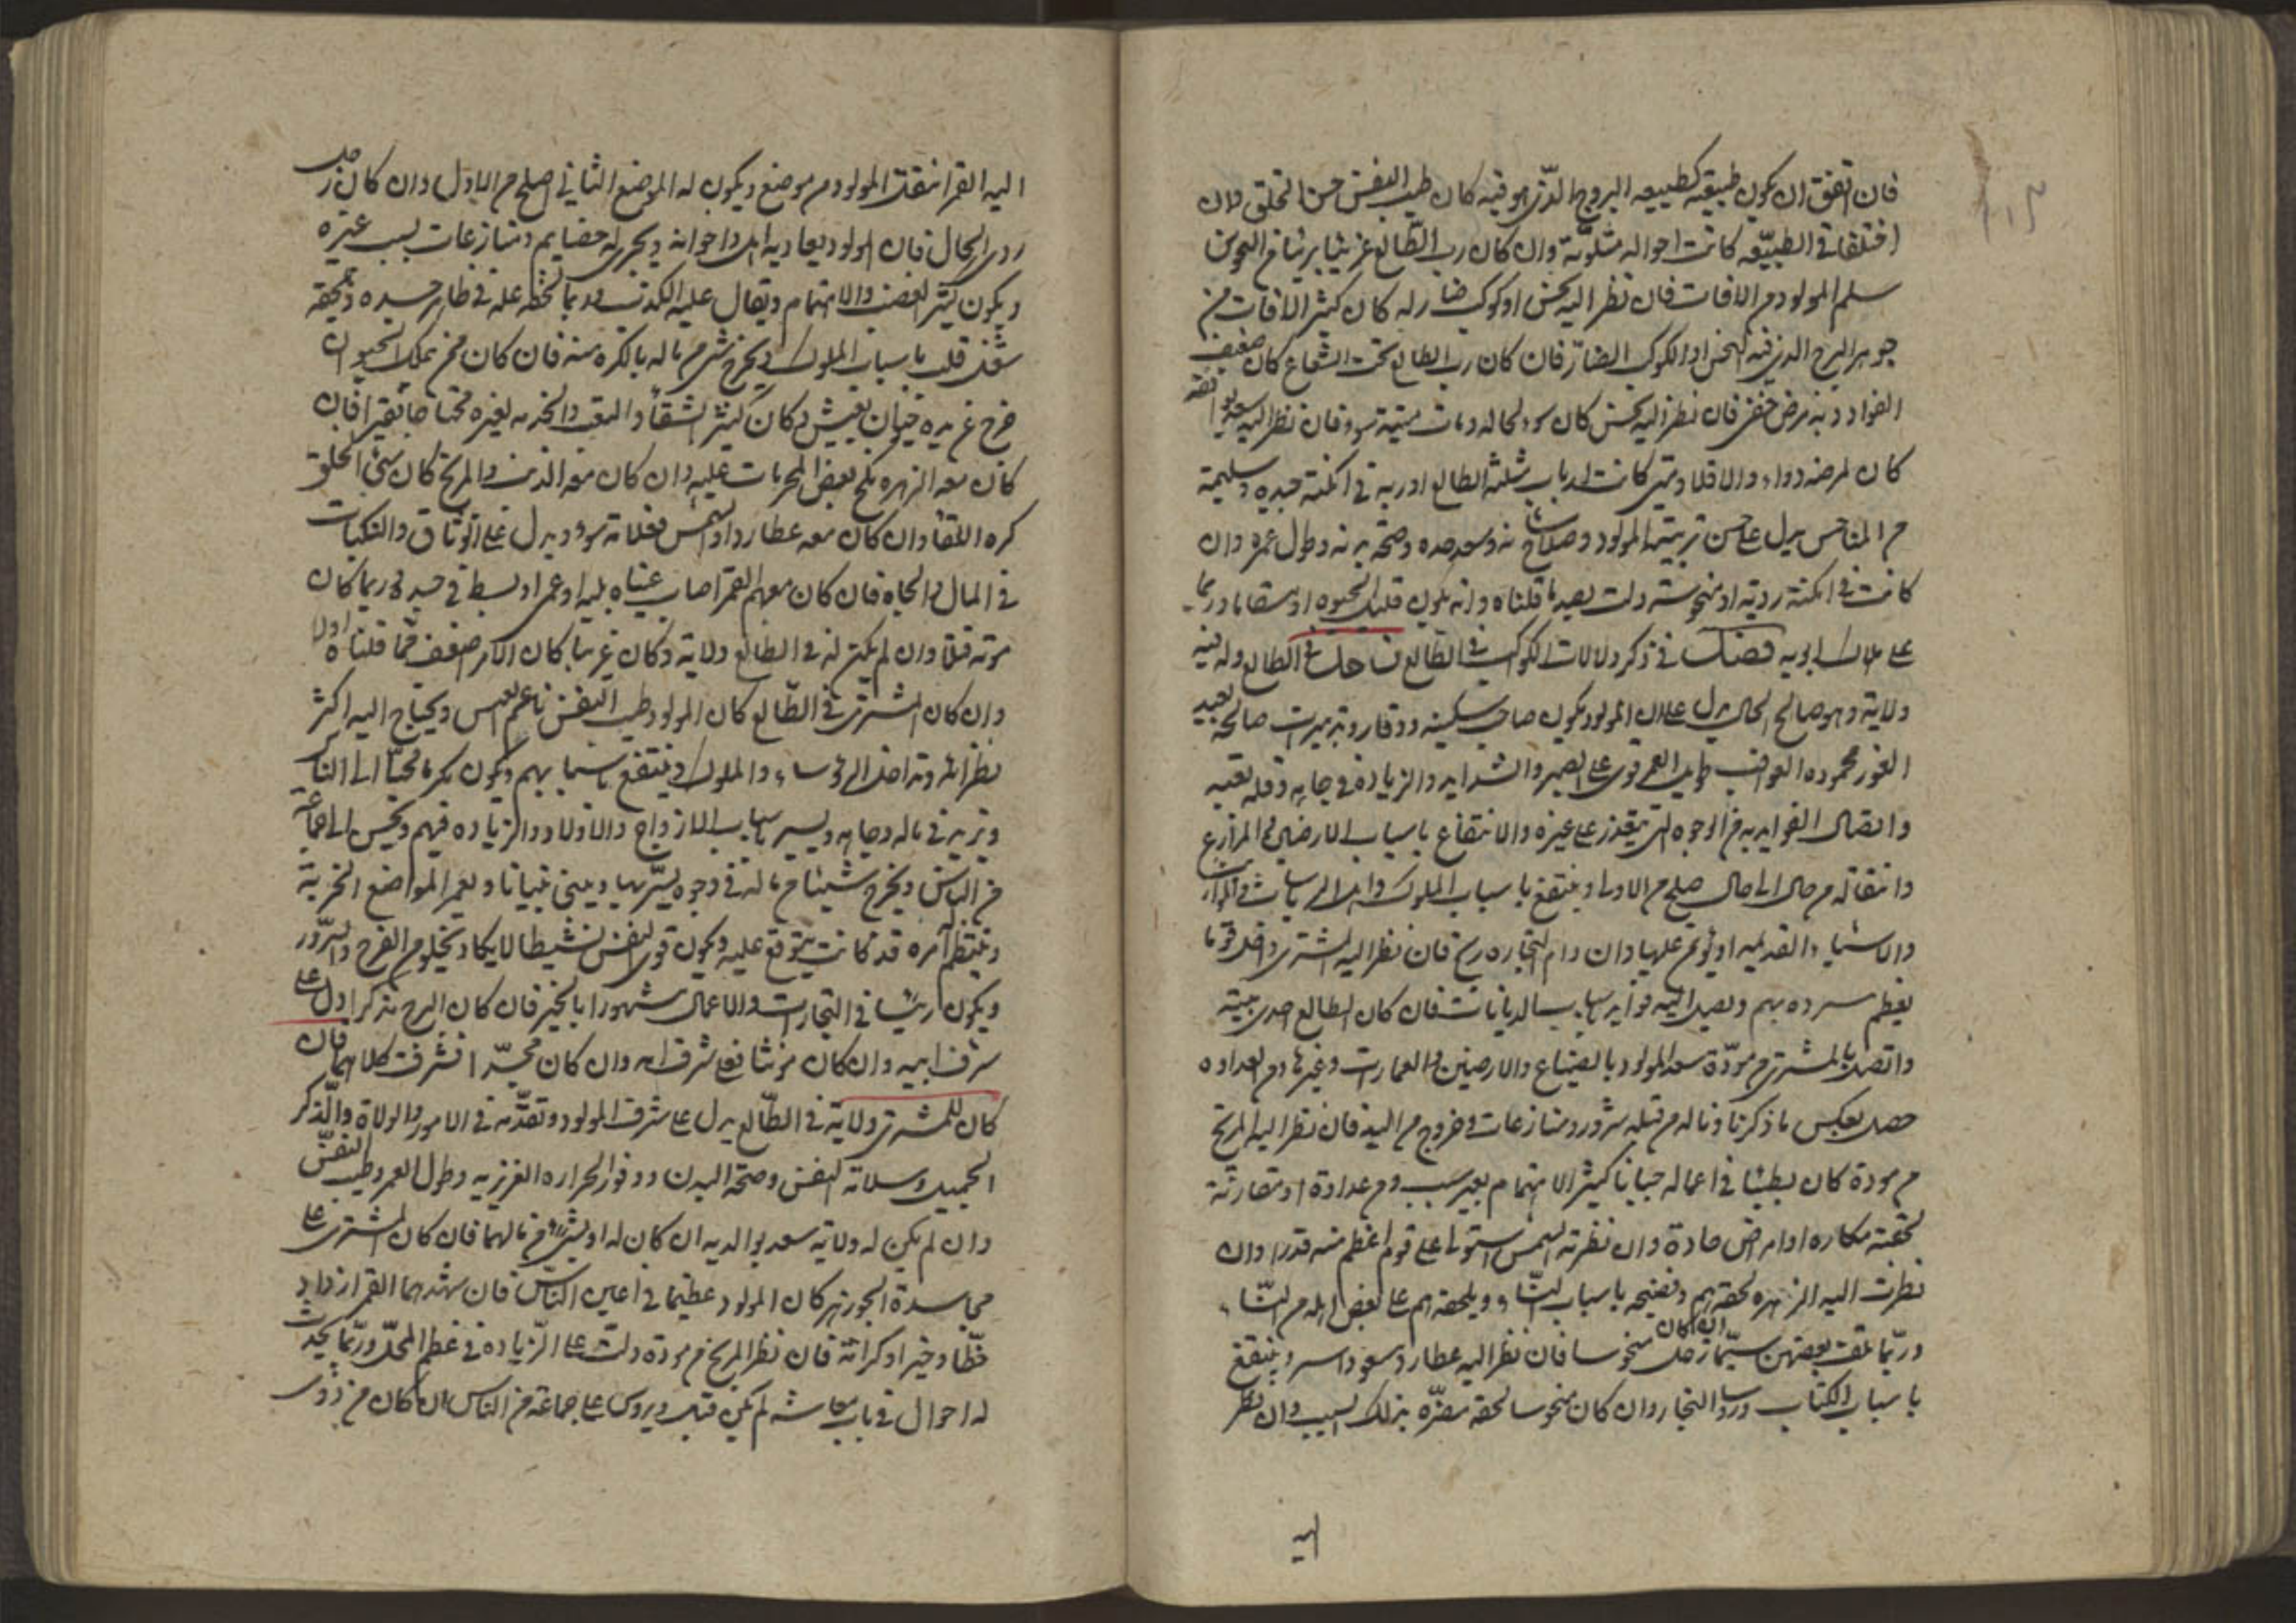 فان اتفق ان يكون طبيعته كطبيعه البروج الذى هو فيه كان طيب النفس حسن الخلق وان
اختلفا فى الطبيعه كانت احواله متلونة وان كان رب الطالع غربيا بريئا من النحوس
سلم المولود من الافات فان نظر اليه نحس او كوكب ضار له كان كثير الافات من
جوهر البرج الذى فيه النحس او الكوكب الضار فان كان رب الطالع تحت الشعاع كان ضعيف
الفواد وبه مرض خفى فان نظر اليه نحس كان سوء لحاله ومات ميتة سوء فان نظر اليه سعد
كان لمرضه دواء والا فلا ومتى كانت ارباب مثلثة الطالع او ربه فى امكنة جيده سليمة
من المناحس يدل على حسن تربية المولود وصلاح شانه وسعد جده وصحة بدنه وطول عمره وان
كانت فى امكنة ردية او منحوسه دلت بضد ما قلناه وانه يكون قليل الحيوه او مسقاما وربما
على هلاك ابويه فصل فى ذكر دلالات الكواكب فى الطالع زحل فى الطالع وله فيه
ولاية وهو صالح الحال يدل على ان المولود يكون صاحب سكينه ووقار وتدبيرات صالحه بعيد
الغور محموده العواقب طويل العمر قوى على الصبر والشدايد والزيادة فى جاهه وقله تعبه
واتصال الفوايد به من الوجوه التى يتعذر على غيره والانتفاع باسباب الارضين والمزارع
وانتقاله من حال الى حال اصلح من الاولى وينتفع باسباب الملوك
والاشياء القديمه او يوتمن عليها وان رام التجاره ربح فان نظر اليه المشترى داخل قوما
يعظم سروره بهم ويصل اليه فوايد باسباب الديانات فان كان الطالع احدى بيتيه
واتصل بالمشترى من مودة سعد المولود بالضياع والارضين والعمارات وغيرها ومن العداوه
حصل بعكس ما ذكرنا وناله من قبله شرور ومنازعات وخروج من اليد فان نظر اليه المريخ
من مودة كان بطيئا فى اعماله جبانا كثير الاهتمام بغير سبب ومن عداوة او مقارنة
لحقته مكاره او امراض حادة وان نظرته الشمس استولى على قوم اعظم منه قدرا وان
نظرت اليه الزهره لحقه هم وفضيحه باسباب النساء ويلحقه هم على بعض اهله من النساء
وربما تلف بعضهن سيما ان كان زحل منحوسا فان نظر اليه عطارد مسعودا سر وينتفع
باسباب الكتاب ورسا التجار وان كان منحوسا لحقه مضره بذلك السبب وان نظر
اليه
اليه القمر انتقل المولود من موضع ويكون له الموضع الثانى اصلح من الاول وان كان زحل
ردى الحال فان المولود يعاديه اهله واخوانه ويجرى له خصايم ومنازعات بسبب غيره
ويكون كثير الغضب والاهتمام ويقال عليه الكذب وربما لحقه عله فى ظاهر جسده ولحقه
شغل قلب باسباب الملوك ويخرج شى من ماله بالكره منه فان كان ممن يملك الحيوان
خرج عن يده حيوان نفيس وكان كثير الشقا والتعب والخدمه لغيره محتاجا فقيرا فان
كان معه الزهره نكح بعض المحرمات عليه وان كان معه الذنب والمريخ كان سيئ الخلق
كره اللقا وان كان معه عطارد او الشمس فعلامة سوء ويدل على الوثاق والنكبات
فى المال والجاه فان كان معهم القمر اصاب عينيه بليه او عمى او بسط فى جسده وربما كان
موته قتلا وان لم يكن له فى الطالع ولاية وكان غريبا كان الامر اضعف مما قلناه اولا
وان كان المشترى فى الطالع كان المولود طيب النفس ناعم العيش ويحتاج اليه اكثر
نظرائه وتداخل الروساء والملوك وينتفع باسبابهم ويكون مكرما محببا الى الناس
ويزيد فى ماله وجاهه ويسر باسباب الازواج والاولاد والزياده فيهم ويحسن الى جماعه
من الناس ويخرج شيئا من ماله فى وجوه يسر بها ويبنى بنيانا ويعمر المواضع الخربة
وينتظم له امره قد كانت يتوقع عليه ويكون قوى النفس نشيطا لا يكاد يخلو من الفرح والسرور
ويكون رئيسا فى التجارات والاعمال مشهورا بالخير فان كان البرج مذكرا دل على
شرف ابيه وان كان مونثا فعلى شرف امه وان كان مجسدا فشرفت كلاهما فان
كان للمشترى ولاية فى الطالع يدل على شرف المولود وتقدمه فى الامور والولاة والذكر
الجميل وسلامة النفس وصحة البدن ووفور الحراره الغريزيه وطول العمر وطيب النفس
وان لم يكن له ولاية سعد بوالديه ان كان له او يثرى من مالهما فان كان المشترى على
مجاسدة الجوزهر كان المولود عظيما فى اعين الناس فان شهدهما القمر ازداد
حظا وخيرا وكرامة فان نظر المريخ من مودة دلت على الزيادة فى عظم المحل وربما يحدث
له احوال فى باب معاشه لم يكن قبله ويروس على جماعة من الناس ان كان من ذوى